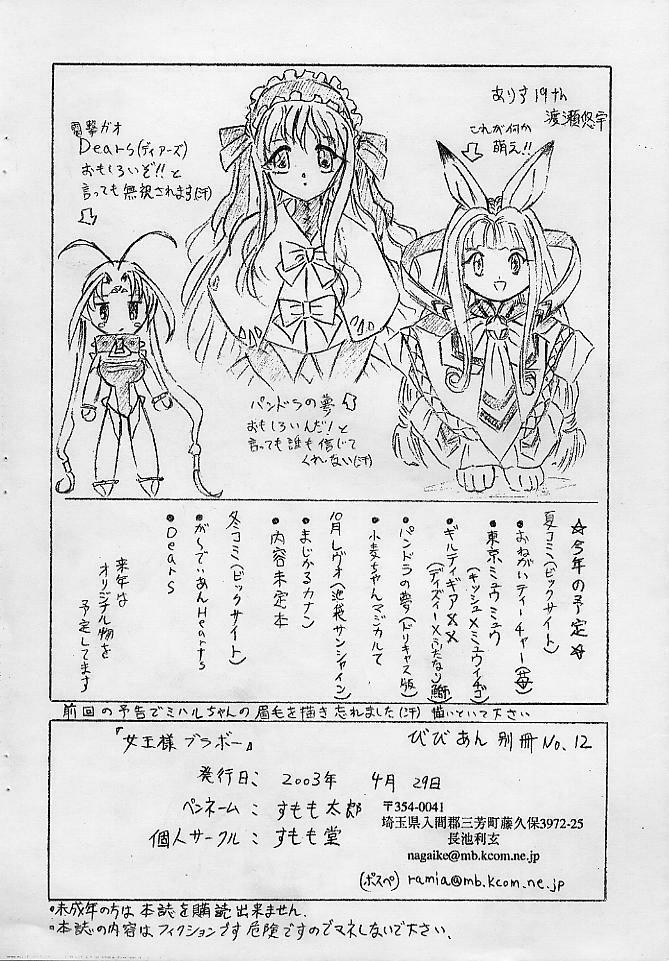 ありす19th
渡瀬悠宇
これが何か
萌え!!
電撃ガオ
Dears(ディアーズ)
おもしろいぞ!!と
言っても無視されます(汗)
パンドラの夢
おもしろいんだ!と
言っても誰も信じて
くれない(汗)
☆今年の予定☆
夏コミ(ビックサイト)
•おねがいティーチャー(苺)
•東京ミュウミュウ
(キッシュ×ミュウイチゴ)
•ギルティギア××
(ディズィー×ふたなり鰤)
•パンドラの夢(ドリキャス版)
•小麦ちゃんマジカルて
10月レヴォ(池袋サンシャイン)
•まじかるカナン
•内容未定本
冬コミ(ビックサイト)
•がーでぃあんHearts
•Dears
来年は
オリジナル物を
予定してます
前回の予告でミハルちゃんの眉毛を描き忘れました(汗) 描いといて下さい
『女王様ブラボー』 びびあん別冊No.12
発行日: 2003年 4月 29日
ペンネーム: すもも太郎
個人サークル: すもも堂
〒354-0041
埼玉県入間郡三芳町藤久保3972-25
長池利玄
nagaike@mb.kcom.ne.jp
(ポスペ) ramia@mb.kcom.ne.jp
•未成年の方は本誌を購読出来ません.
•本誌の内容はフィクションです危険ですのでマネしないで下さい.